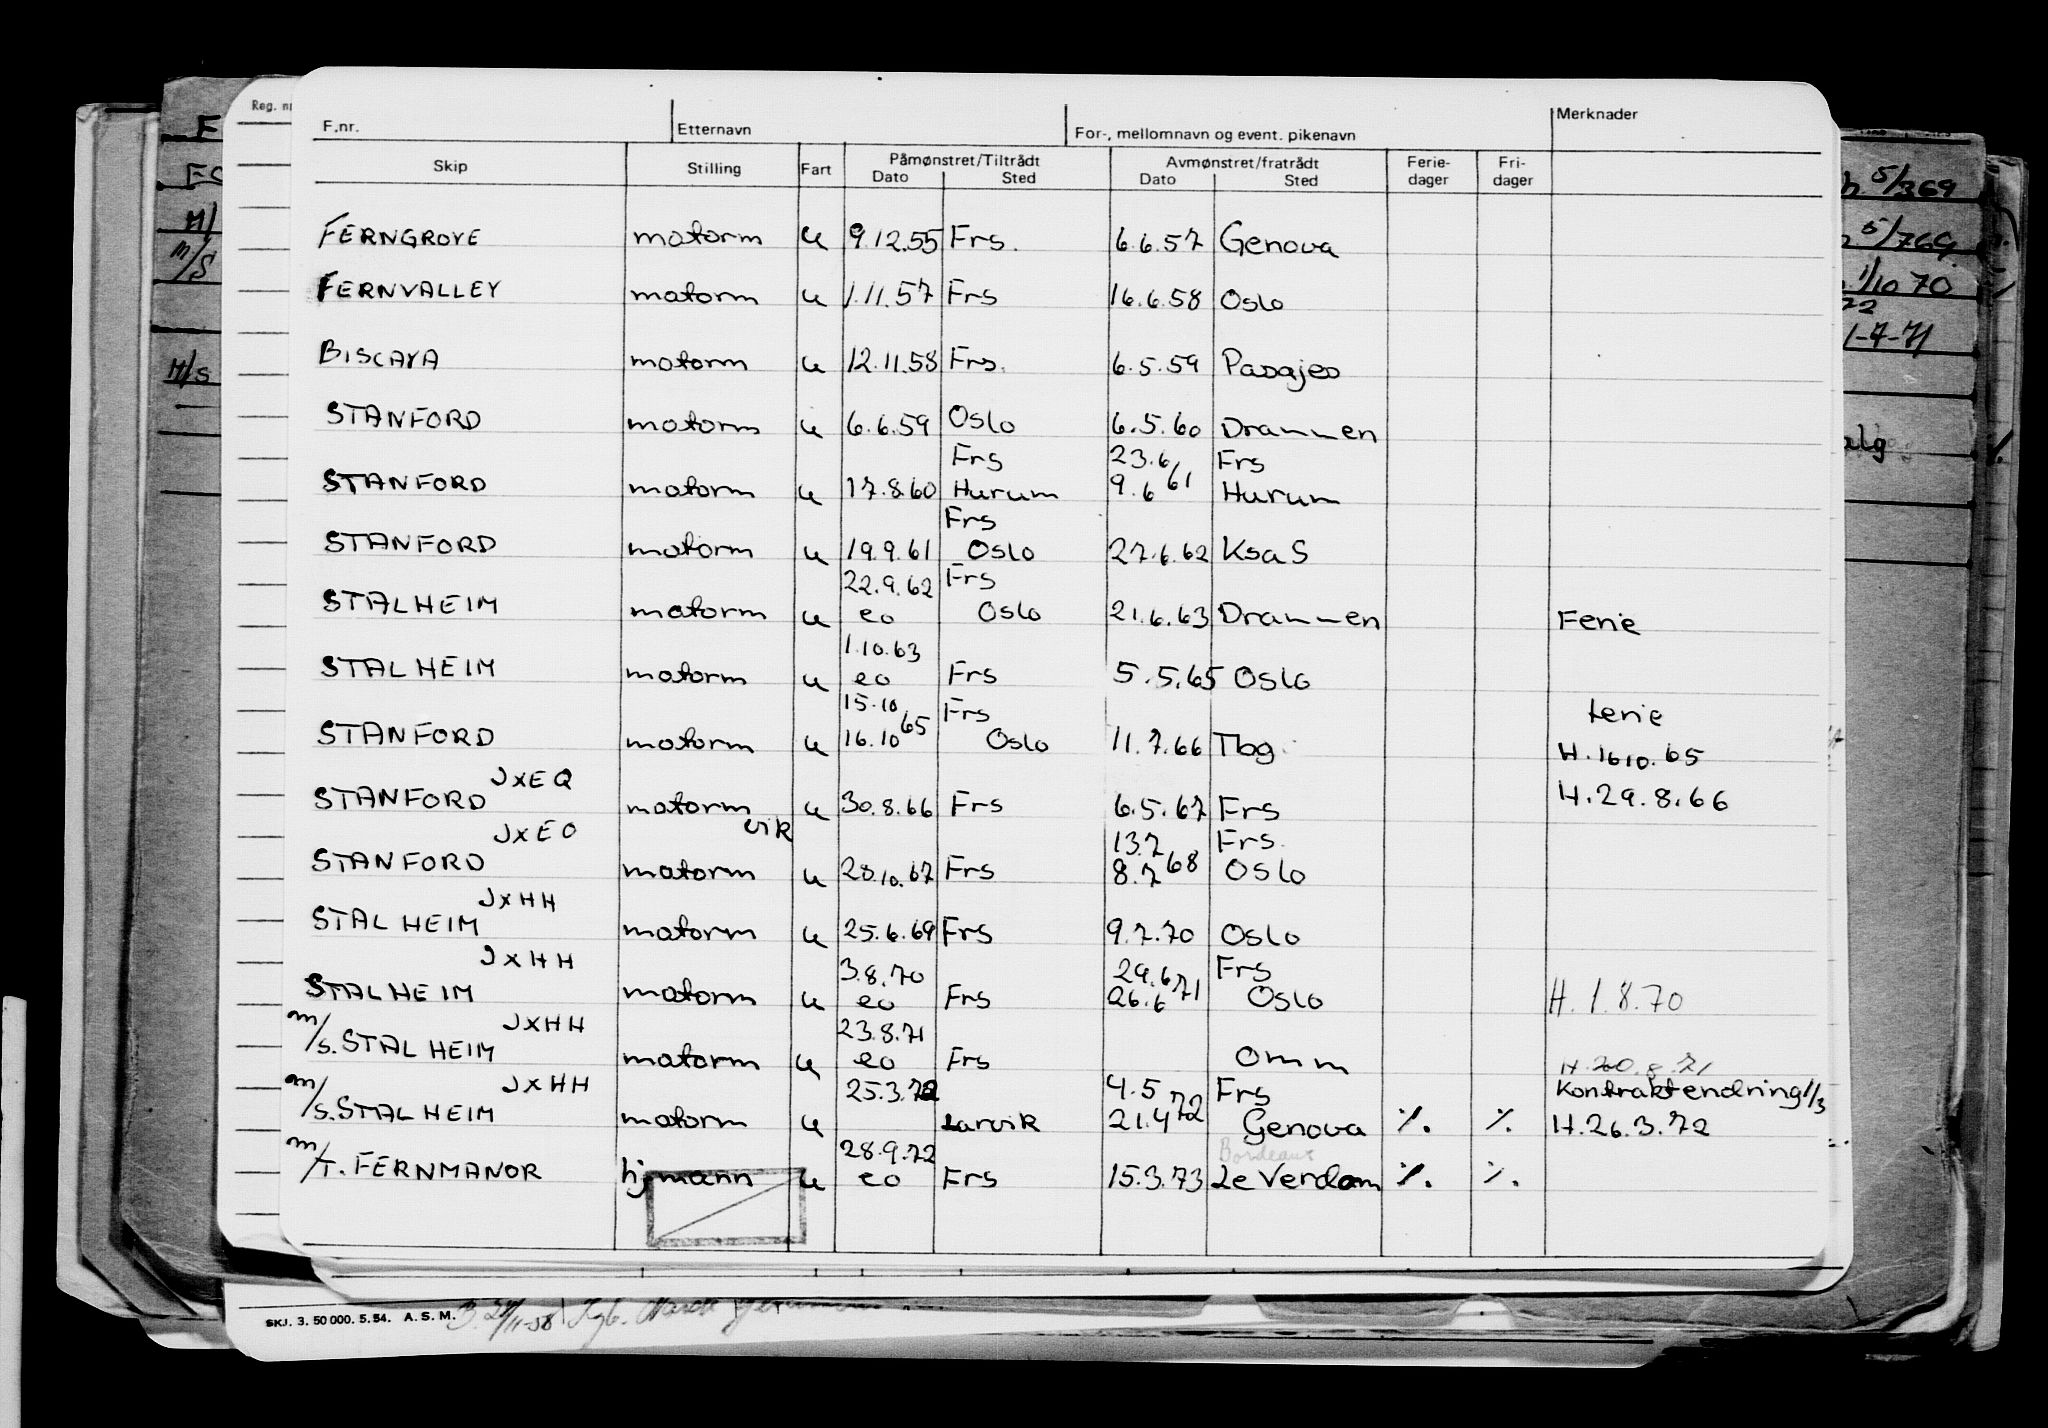 Reg. nr
F.nr. Etternavn For-, mellomnavn og event. pikenavn Merknader
Skip Stilling Fart Påmønstret/Tiltrådt Avmønstret/fratrådt Ferie-dager Fri-dager
Dato Sted Dato Sted
FERNGROVE motorm u 9.12.55 Frs. 6.6.57 Genova
FERNVALLEY motorm u 1.11.57 Frs 16.6.58 Oslo
BISCAYA motorm u 12.11.58 Frs. 6.5.59 Pasajes
STANFORD motorm u 6.6.59 Oslo 6.5.60 Drammen
Frs 23.6 Frs
STANFORD motorm u 17.8.60 Hurum 9.6 61 Hurum
Frs
STANFORD motorm u 19.9.61 Oslo 27.6.62 KsaS
22.9.62 Frs
STALHEIM motorm u eo Oslo 21.6.63 Drammen Ferie
1.10.63
STALHEIM motorm u eo Frs 5.5.65 Oslo
15.10 Frs ferie
STANFORD motorm u 16.10 65 Oslo 11.7.66 Tbg H.1610.65
JXEQ
STANFORD motorm u 30.8.66 Frs 6.5.67 Frs H.29.8.66
JXEO vik 13.7 Frs.
STANFORD motorm u 28.10.67 Frs 8.7 68 Oslo
JXHH
STALHEIM motorm u 25.6.69 Frs 9.7.70 Oslo
JXHH 3.8.70 29.6 Frs
STALHEIM motorm u eo Frs 26.6 71 Oslo H.1.8.70
JXHH 23.8.71
m/s. STALHEIM motorm u eo Frs Omm H.20.8.71
JXHH 25.3.72 4.5 Frs Kontraktendring 1/3
m/s. STALHEIM motorm u Larvik 21.4 72 Genova %. %. H.26.3.72
28.9.72 Bordeaux
m/T. FERNMANOR hjmann u eo Frs 15.3.73 Le Verdom %. %.
SKJ. 3. 50 000. 5.54. A. S. M.
M/
m/s
M/s
5/369
5/769
1/10 70
22
1-7-71
alg